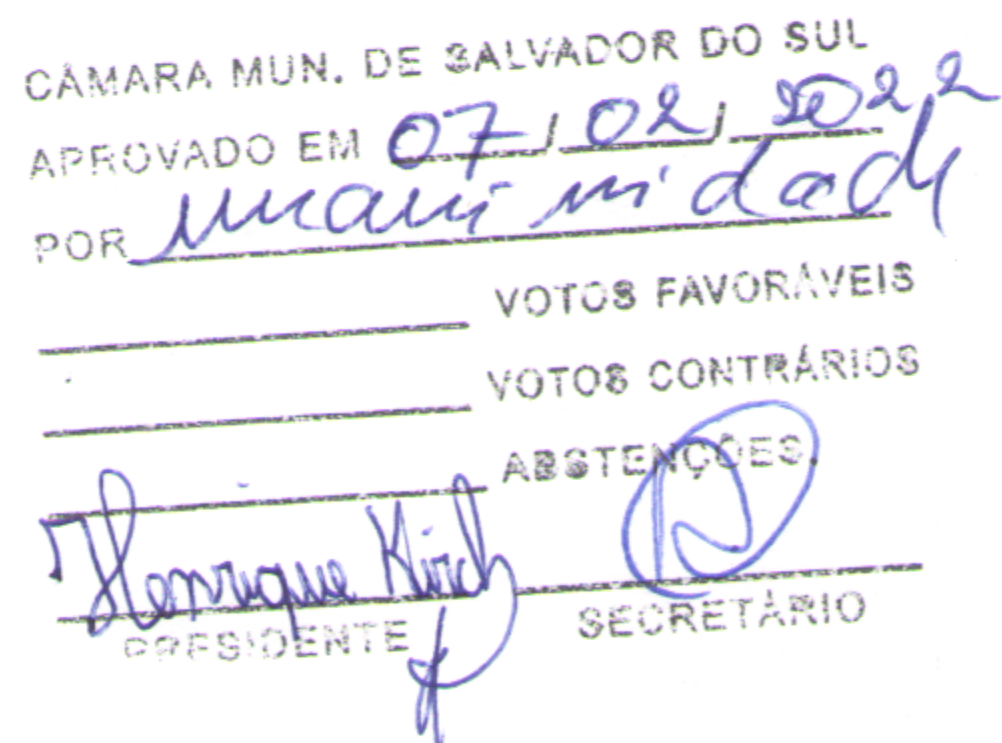 CÂMARA MUN. DE SALVADOR DO SUL
APROVADO EM 07 / 02 / 2022
POR unanimidade
VOTOS FAVORÁVEIS
VOTOS CONTRÁRIOS
ABSTENÇÕES.
Henrique Kirch
PRESIDENTE SECRETÁRIO